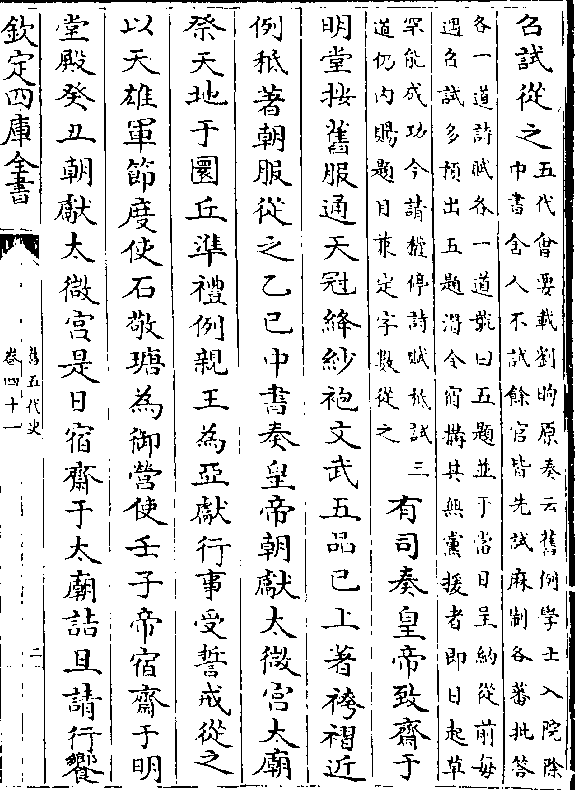 召試從之
五代會要載劉昫原奏云舊例學士入院除
中書舍人不試餘官皆先試麻制各蕃批答
各一道詩賦各一道號曰五題並于當日呈納從前每
遇召試多預出五題潛令宿搆其無黨援者即日起草
罕能成功今請權停詩賦祗試三
道仍內賜題目兼定字數從之
有司奏皇帝致齋于
明堂按舊服通天冠絳紗袍文武五品已上著袴褶近
例秪著朝服從之乙巳中書奏皇帝朝獻太微宫太廟
祭天地于圜丘準禮例親王為亞獻行事受誓戒從之
以天雄軍節度使石敬瑭為御營使壬子帝宿齋于明
堂殿癸丑朝獻太微宫是日宿齋于太廟詰旦請行饗
欽定四庫全書
舊五代史
卷四十一
二